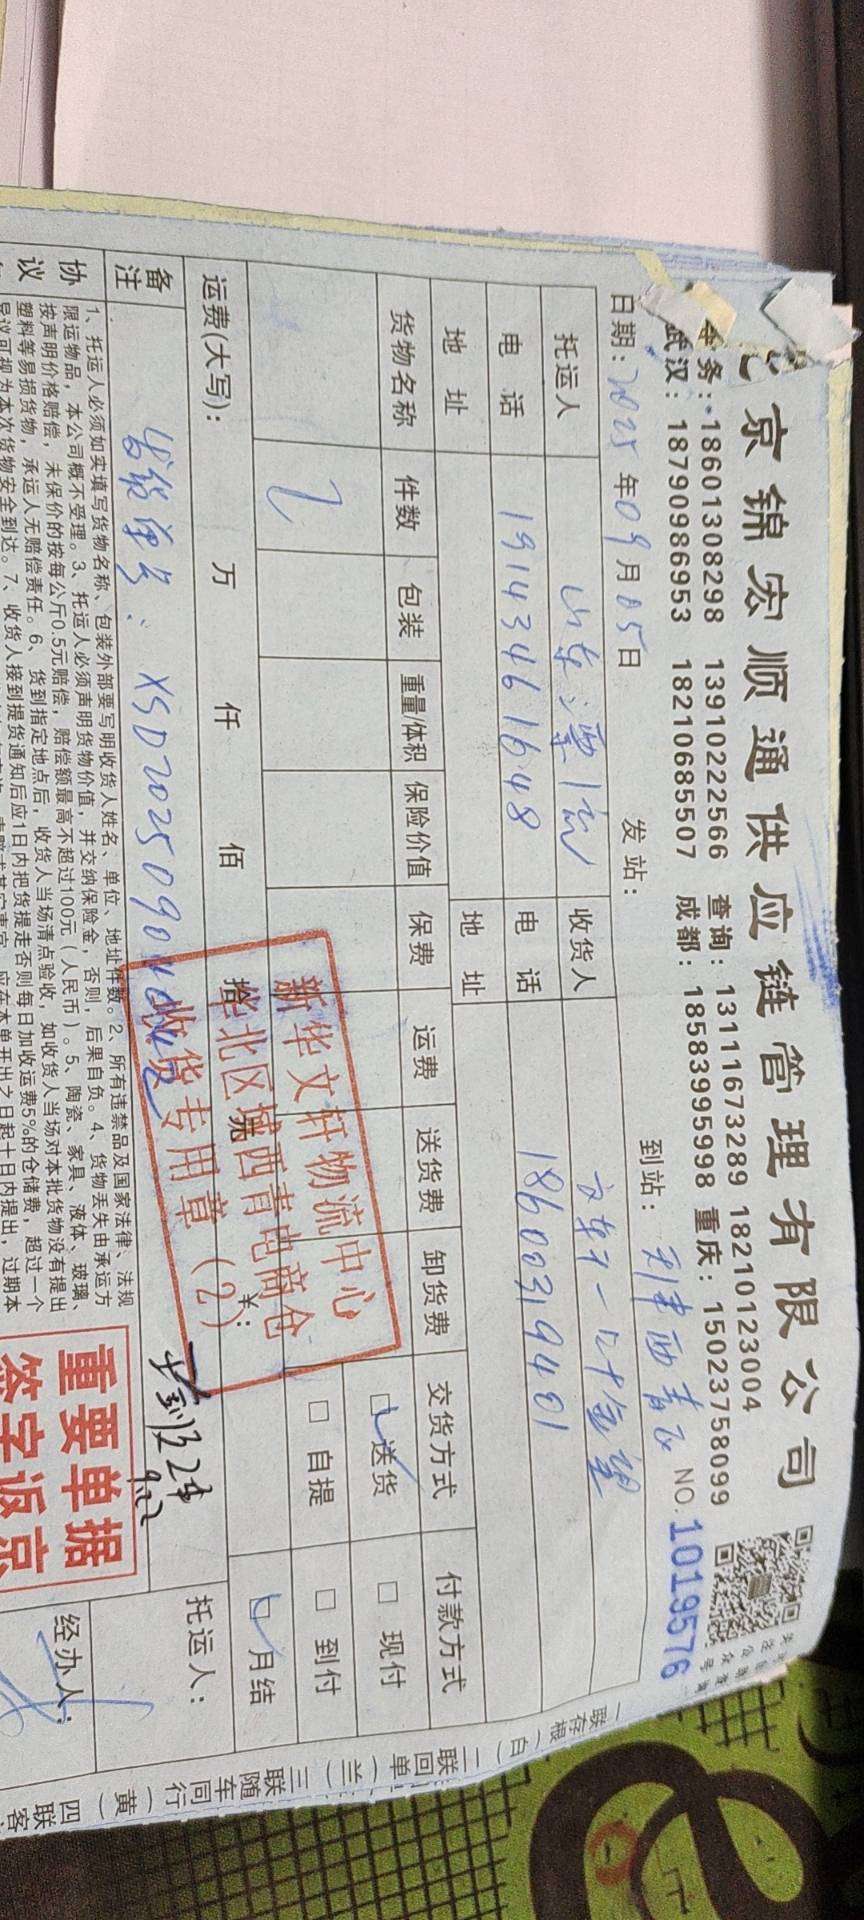 京锦宏顺通供应链管理有限公司
务：18601308298 13910222566 查询：13111673289 18210123004
武汉：18790986953 18210685507 成都：18583995998 重庆：15023758099
日期：2025年09月05日 发站： 到站：天津西青区 NO.1019576
托运人 收货人
电话 19143461648 电话 18600319401
地址 地址
货物名称 件数 包装 重量/体积 保险价值 保费 运费 送货费 卸货费 交货方式 付款方式
2
送货 现付
自提 到付
月结
运费(大写)： 万 仟 佰 拾 元 ¥：
托运人：
备注 发货单号：XSD20250904
新华文轩物流中心
华北区域西青电商仓
收货专用章（2）
实到12件
经办人：
重要单据
签字返京
协议
1、托运人必须如实填写货物名称、包装外部要写明收货人姓名、单位、地址件数。2、所有违禁品及国家法律、法规
限运物品，本公司概不受理。3、托运人必须声明货物价值，并交纳保险金，否则，后果自负。4、货物丢失由承运方
按声明价格赔偿，未保价的按每公斤0.5元赔偿，赔偿额最高不超过100元（人民币）。5、陶瓷、家具、液体、玻璃、
塑料等易损货物，承运人无赔偿责任。6、货到指定地点后，收货人当场清点验收，如收货人当场对本批货物没有提出
异议可视为本次货物安全到达。7、收货人接到提货通知后应1日内把货提走否则每日加收运费5%的仓储费，超过一个
应在本单开出之日起十日内提出，过期本
一联存根（白） 二联回单（兰） 三联随车同行（黄） 四联客